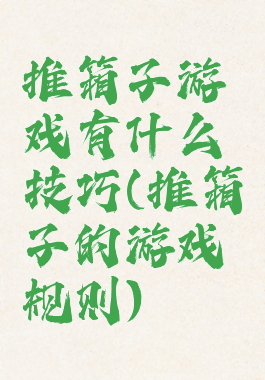 推箱子游
戏有什么
技巧(推箱
子的游戏
规则)